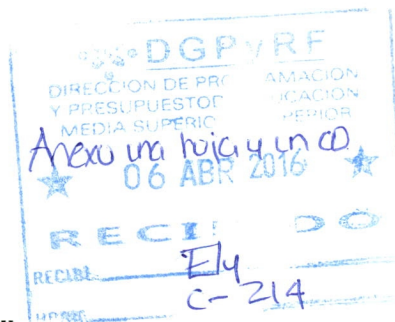 DGPyRF
DIRECCION DE PR AMACION
Y PRESUPUESTO ICACION
MEDIA SUPERIO PERIOR
Anexo una hoja y un CD
06 ABR 2016
RECI DO
RECIBE Ely
C-214